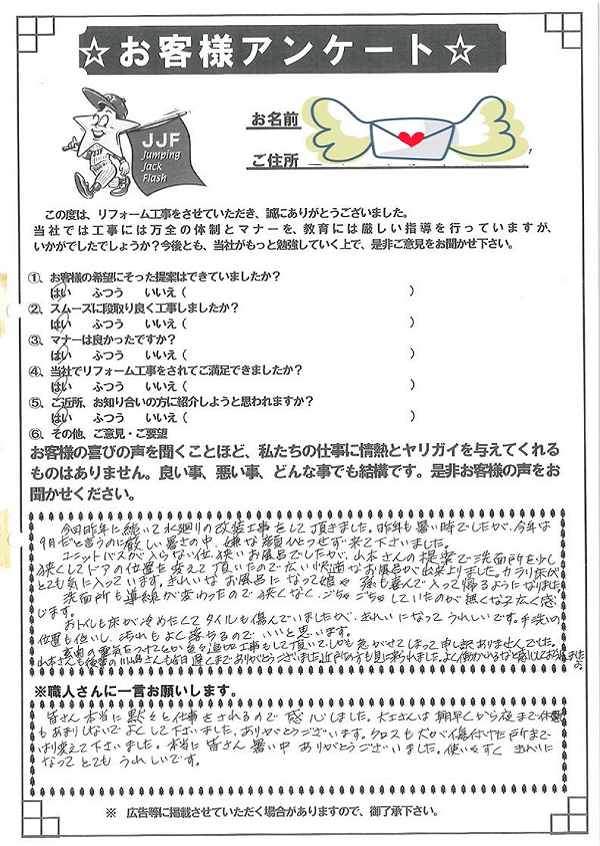 ☆お客様アンケート☆
JJF
Jumping
Jack
Flash
お名前
ご住所
この度は、リフォーム工事をさせていただき、誠にありがとうございました。
当社では工事には万全の体制とマナーを、教育には厳しい指導を行っていますが、
いかがでしたでしょうか?今後とも、当社がもっと勉強していく上で、是非ご意見をお聞かせ下さい。
①、お客様の希望にそった提案はできていましたか?
はい ふつう いいえ( )
②、スムーズに段取り良く工事しましたか?
はい ふつう いいえ( )
③、マナーは良かったですか?
はい ふつう いいえ( )
④、当社でリフォーム工事をされてご満足できましたか?
はい ふつう いいえ( )
⑤、ご近所、お知り合いの方に紹介しようと思われますか?
はい ふつう いいえ( )
⑥、その他、ご意見・ご要望
お客様の喜びの声を聞くことほど、私たちの仕事に情熱とヤリガイを与えてくれる
ものはありません。良い事、悪い事、どんな事でも結構です。是非お客様の声をお
聞かせください。
今回昨年に続いて水廻りの改装工事をして頂きました。昨年も暑い時でしたが、今年は
9月だと言うのに厳しい暑さの中、嫌な顔ひとつせず来て下さいました。
ユニットバスが入らない位、狭いお風呂でしたが、山本さんの提案で洗面所を少し
狭くしてドアの位置を変えて頂いたので広い快適なお風呂が出来上りました。カラリ床が
とても気に入っています。きれいなお風呂になって娘や孫も喜んで入って帰るようになりました。
洗面所も導線が変わったので狭くなく、ごちゃごちゃしていたのが無くなって広く感
じます。
おトイレも床が冷めたくてタイルも傷んでいましたが、きれいになってうれしいです。手洗いの
位置も使いし、汚れもよく落ちるのでいいと思います。
玄関の電気をつけてとか色々追加工事もして頂いてしかも急がせてしまって申し訳ありませんでした。
山本さんも後輩の川嶋さんも毎日遅くまでありがとうございました。近所の方も見に来られました。よく働かれるなと感心しておられましたよ。
※職人さんに一言お願いします。
皆さん本当に黙々と仕事をされるので感心しました。大工さんは朝早くから夜まで休憩
もあまりしないでよくして下さいました。ありがとうございます。クロスも犬が傷付けた所まで
はり変えて下さいました。本当に皆さん暑い中ありがとうございました。使いやすくきれいに
なってとてもうれしいです。
※ 広告等に掲載させていただく場合がありますので、御了承下さい。